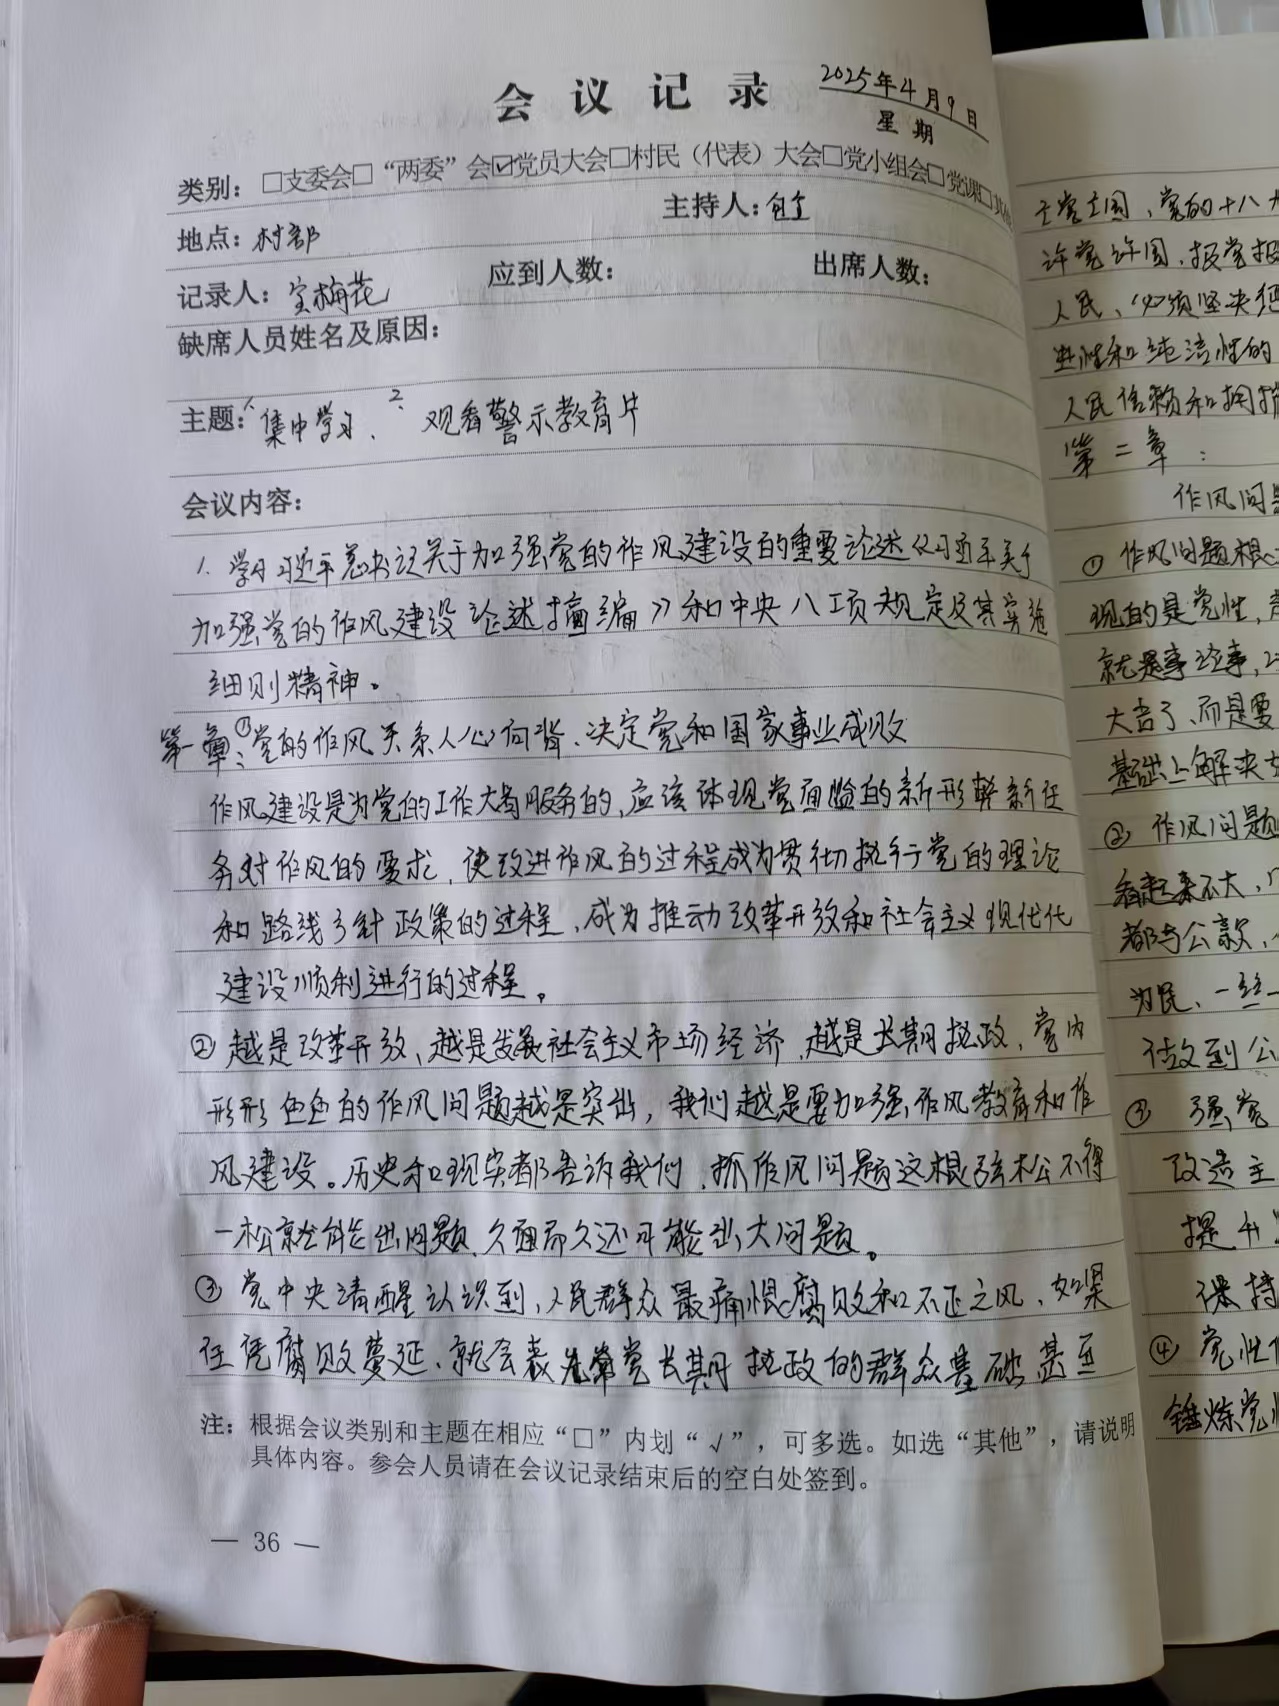 会议记录
2025年4月9日
星期
类别：□支委会□“两委”会☑党员大会□村民（代表）大会□党小组会□党课□其他
地点：村部
主持人：
记录人：宝梅花
应到人数：
出席人数：
缺席人员姓名及原因：
主题：1、集中学习、2、观看警示教育片
会议内容：
1、学习习近平总书记关于加强党的作风建设的重要论述《习近平关于
加强党的作风建设论述摘编》和中央八项规定及其实施
细则精神。
第一章：①党的作风关系人心向背、决定党和国家事业成败
作风建设是为党的工作大局服务的，应该体现党面临的新形势新任
务对作风的要求，使改进作风的过程成为贯彻执行党的理论
和路线方针政策的过程，成为推动改革开放和社会主义现代化
建设顺利进行的过程。
②越是改革开放、越是发展社会主义市场经济，越是长期执政，党内
形形色色的作风问题越是突出，我们越是要加强作风教育和作
风建设。历史和现实都告诉我们，抓作风问题这根弦松不得
一松就会出问题，久而久还可能出大问题。
③党中央清醒认识到，人民群众最痛恨腐败和不正之风，如果
任凭腐败蔓延、就会丧党长期执政的群众基础甚至
注：根据会议类别和主题在相应“□”内划“√”，可多选。如选“其他”，请说明
具体内容。参会人员请在会议记录结束后的空白处签到。
— 36 —
党的十八大
许党许国、报党报
人民、必须坚决
进性和纯洁性的
人民信赖和拥护
第二章：
作风问题
①作风问题根
现的是党性，
就是事论事，
大吉了、而是要
基础上解决
②作风问题
看起来不大，
都与公款、
为民、一丝一
做到公
③强党
改造主
提升
保持
④党性
锤炼党